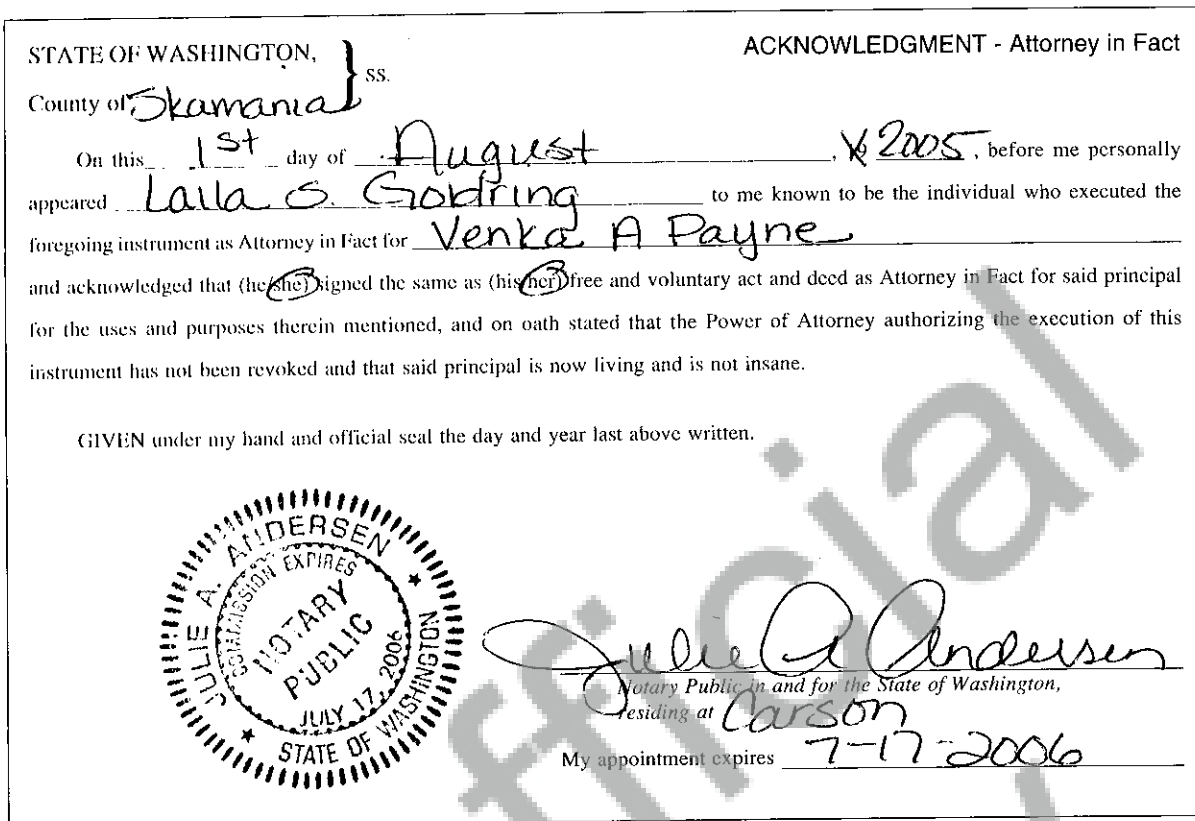 STATE OF WASHINGTON,
ACKNOWLEDGMENT - Attorney in Fact
ss.
County of Skamania
On this 1st day of August, 2005, before me personally
appeared Laila S. Goldring to me known to be the individual who executed the
foregoing instrument as Attorney in Fact for Venka A Payne
and acknowledged that (he/she) signed the same as (his/her) free and voluntary act and deed as Attorney in Fact for said principal
for the uses and purposes therein mentioned, and on oath stated that the Power of Attorney authorizing the execution of this
instrument has not been revoked and that said principal is now living and is not insane.
GIVEN under my hand and official seal the day and year last above written.
JULIE A. ANDERSEN
COMMISSION EXPIRES
NOTARY
PUBLIC
JULY 17, 2006
STATE OF WASHINGTON
Julie A Andersen
Notary Public in and for the State of Washington,
residing at Carson
My appointment expires 7-17-2006
fficial